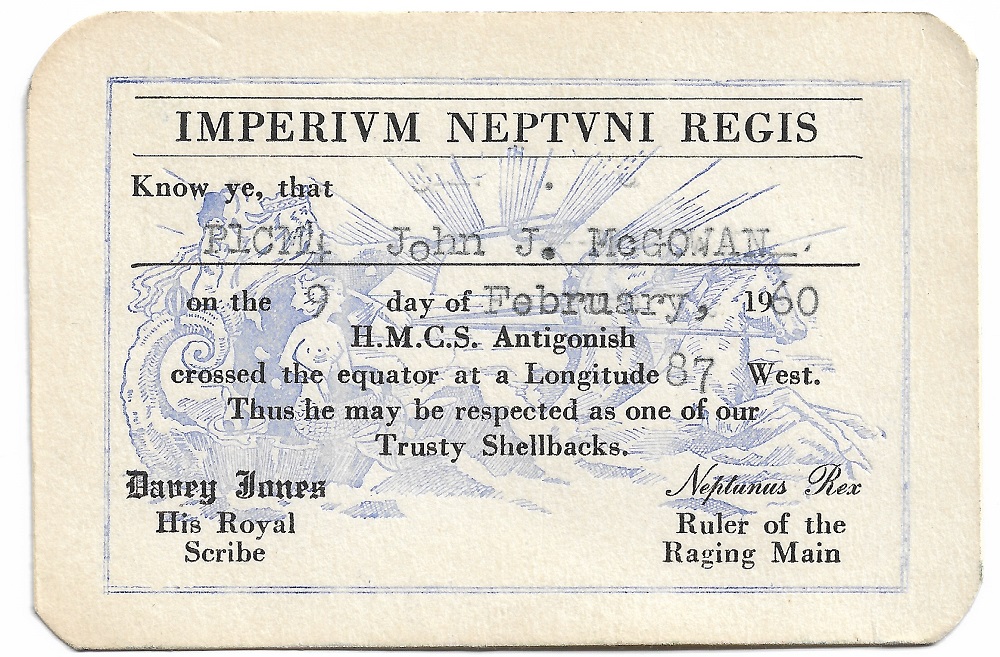 IMPERIVM NEPTVNI REGIS
Know ye, that
John J. McGOWAN
on the 9 day of February, 1960
H.M.C.S. Antigonish
crossed the equator at a Longitude 87 West.
Thus he may be respected as one of our
Trusty Shellbacks.
Davey Jones
His Royal
Scribe
Neptunus Rex
Ruler of the
Raging Main